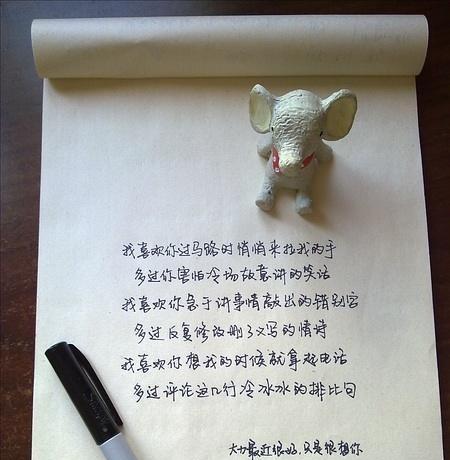 我喜欢你过马路时悄悄来拉我的手
多过你害怕冷场故意讲的笑话
我喜欢你急于讲事情敲出的错别字
多过反复修改删了又写的情诗
我喜欢你想我的时候就拿起电话
多过评论这几行冷冰冰的排比句
大力最近很好，只是很想你